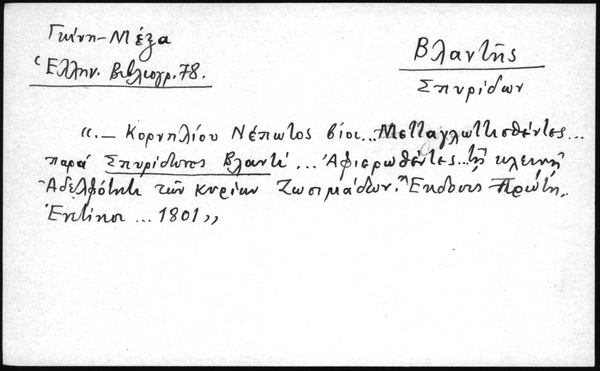 Γκίνη-Μέξα
Ἑλλην. Βιβλιογρ. 78.
Βλαντῆς
Σπυρίδων
«.— Κορνηλίου Νέπωτος βίοι... Μεταγλωττισθέντες...
παρά Σπυρίδωνος Βλαντῆ ... Ἀφιερωθέντες... τῇ κλεινῇ
Ἀδελφότητι τῶν κυρίων Ζωσιμάδων. Ἔκδοσις Πρώτη.
Ἐνετίησι ... 1801»